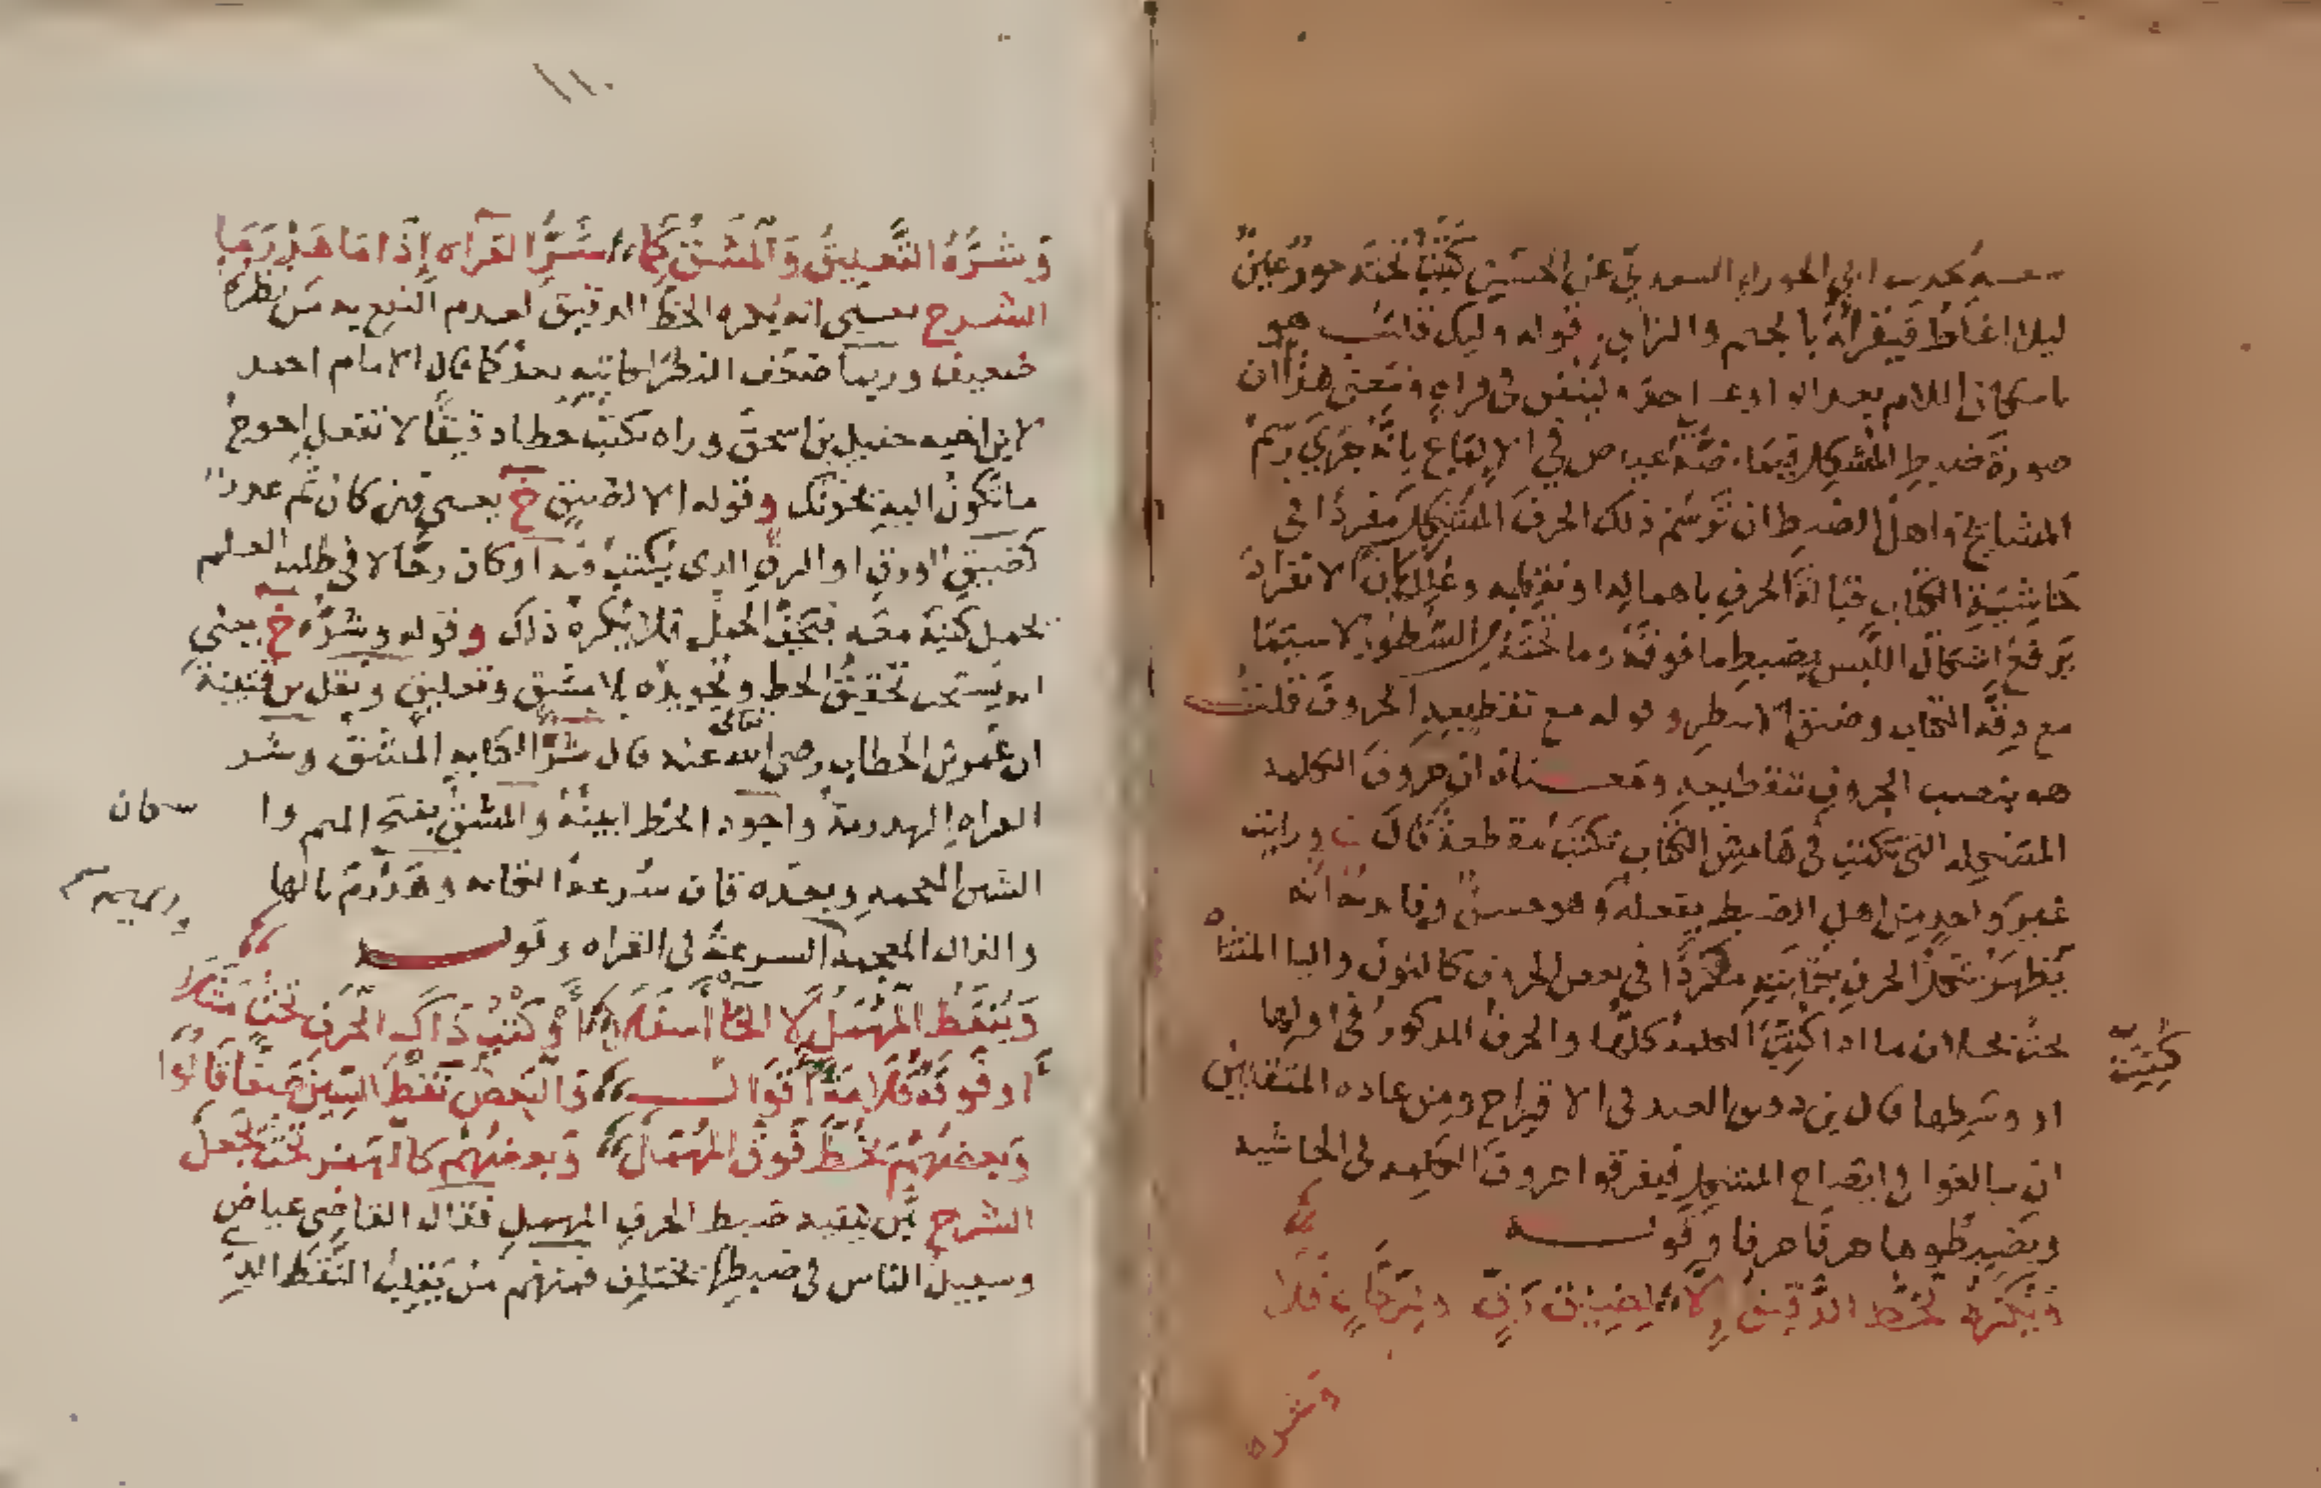 شعبه بحديث ابي الحوراء السعدي عن الحسين كتبت تحته حور عين
ليلا اغلط فيقرأه بالجيم والزاي، قوله وليك قلت هو
باسكان اللام بعد الواو احد ومعنى هذا ان
صورة ضبط المشكل فيما ضبه عياض في الالماع بانه جرى رسم
المشايخ واهل الضبط ان ترسم ذلك الحرف المشكل مفردا في
حاشية الكتاب قبالة الحرف باهماله او نقطه وعلل بان الانفراد
يرفع اشكال اللبس بضبط ما فوقه وما تحته من السطور لا سيما
مع دقة الكتاب وضيق الاسطر وقوله مع تقطيعه الحروف قلت
هو بنصب الحروف بتقطيعه ومعناه ان حروف الكلمه
المشكله التي تكتب في هامش الكتاب تكتب مقطعة قال ن ورايت
غير واحد من اهل الضبط يفعله وهو حسن وفايدته انه
يظهر شكل الحرف بكتابته مفردا في بعض الحروف كالنون واليا المثناه
تحت بخلاف ما اذا كتبت الكلمة كلها والحرف المذكور في اولها
كتبت
او وسطها قال بن دقيق العيد في الاقتراح ومن عاده المتقنين
ان يبالغوا في ايضاح المشكل فيفرقوا حروف الكلمه في الحاشيه
ويضبطوها حرفا حرفا وقوله
ويكره الخط الدقيق الا لضيق رق او لرحال فلا
وشره
١١٠
وشره التعليق والمشق كما شر القراه اذا ما هذرما
الشرح يعني انه يكره الخط الدقيق لعدم النفع به من نظره
ضعيف وربما ضعف النظر كاتبه بعد كما قال الامام احمد
لابن اخيه حنبل بن اسحق وراه يكتب خطا دقيقا لا تفعل احوج
ما تكون اليه يخونك وقوله الا لضيق خ يعني فان كان ثم عذر
كضيق الورق او الرق الذي يكتب فيه او كان رحالا في طلب العلم
يحمل كتبه معه فيخف الحمل فلا يكره ذلك وقوله وشره خ يعني
انه يستحب تحقيق الخط وتجويده بلا مشق وتعليق ونقل بن قتيبة
ان عمر بن الخطاب رضى الله تعالى عنه قال شر الكتابه المشق وشر
القراه الهذرمة واجود الخط ابينه والمشق بفتح الميم وا سكان
الشين المعجمه وبعده قاف سرعة الكتابه وهذرم بالها والميم
والذال المعجمه السرعة في القراه وقوله
وينقط المهمل لا الحا اسفلا او كتب ذاك الحرف تحت مثلا
او فوقه قلامة اقوال والبعض نقط السين صفا قالوا
وبعضهم يخط فوق المهمل وبعضهم كالهمز تحت يجعل
الشرح بين تقييد ضبط الحرف المهمل فقال القاضى عياض
وسبيل الناس في ضبطها مختلف فمنهم من يقلب النقط الذي